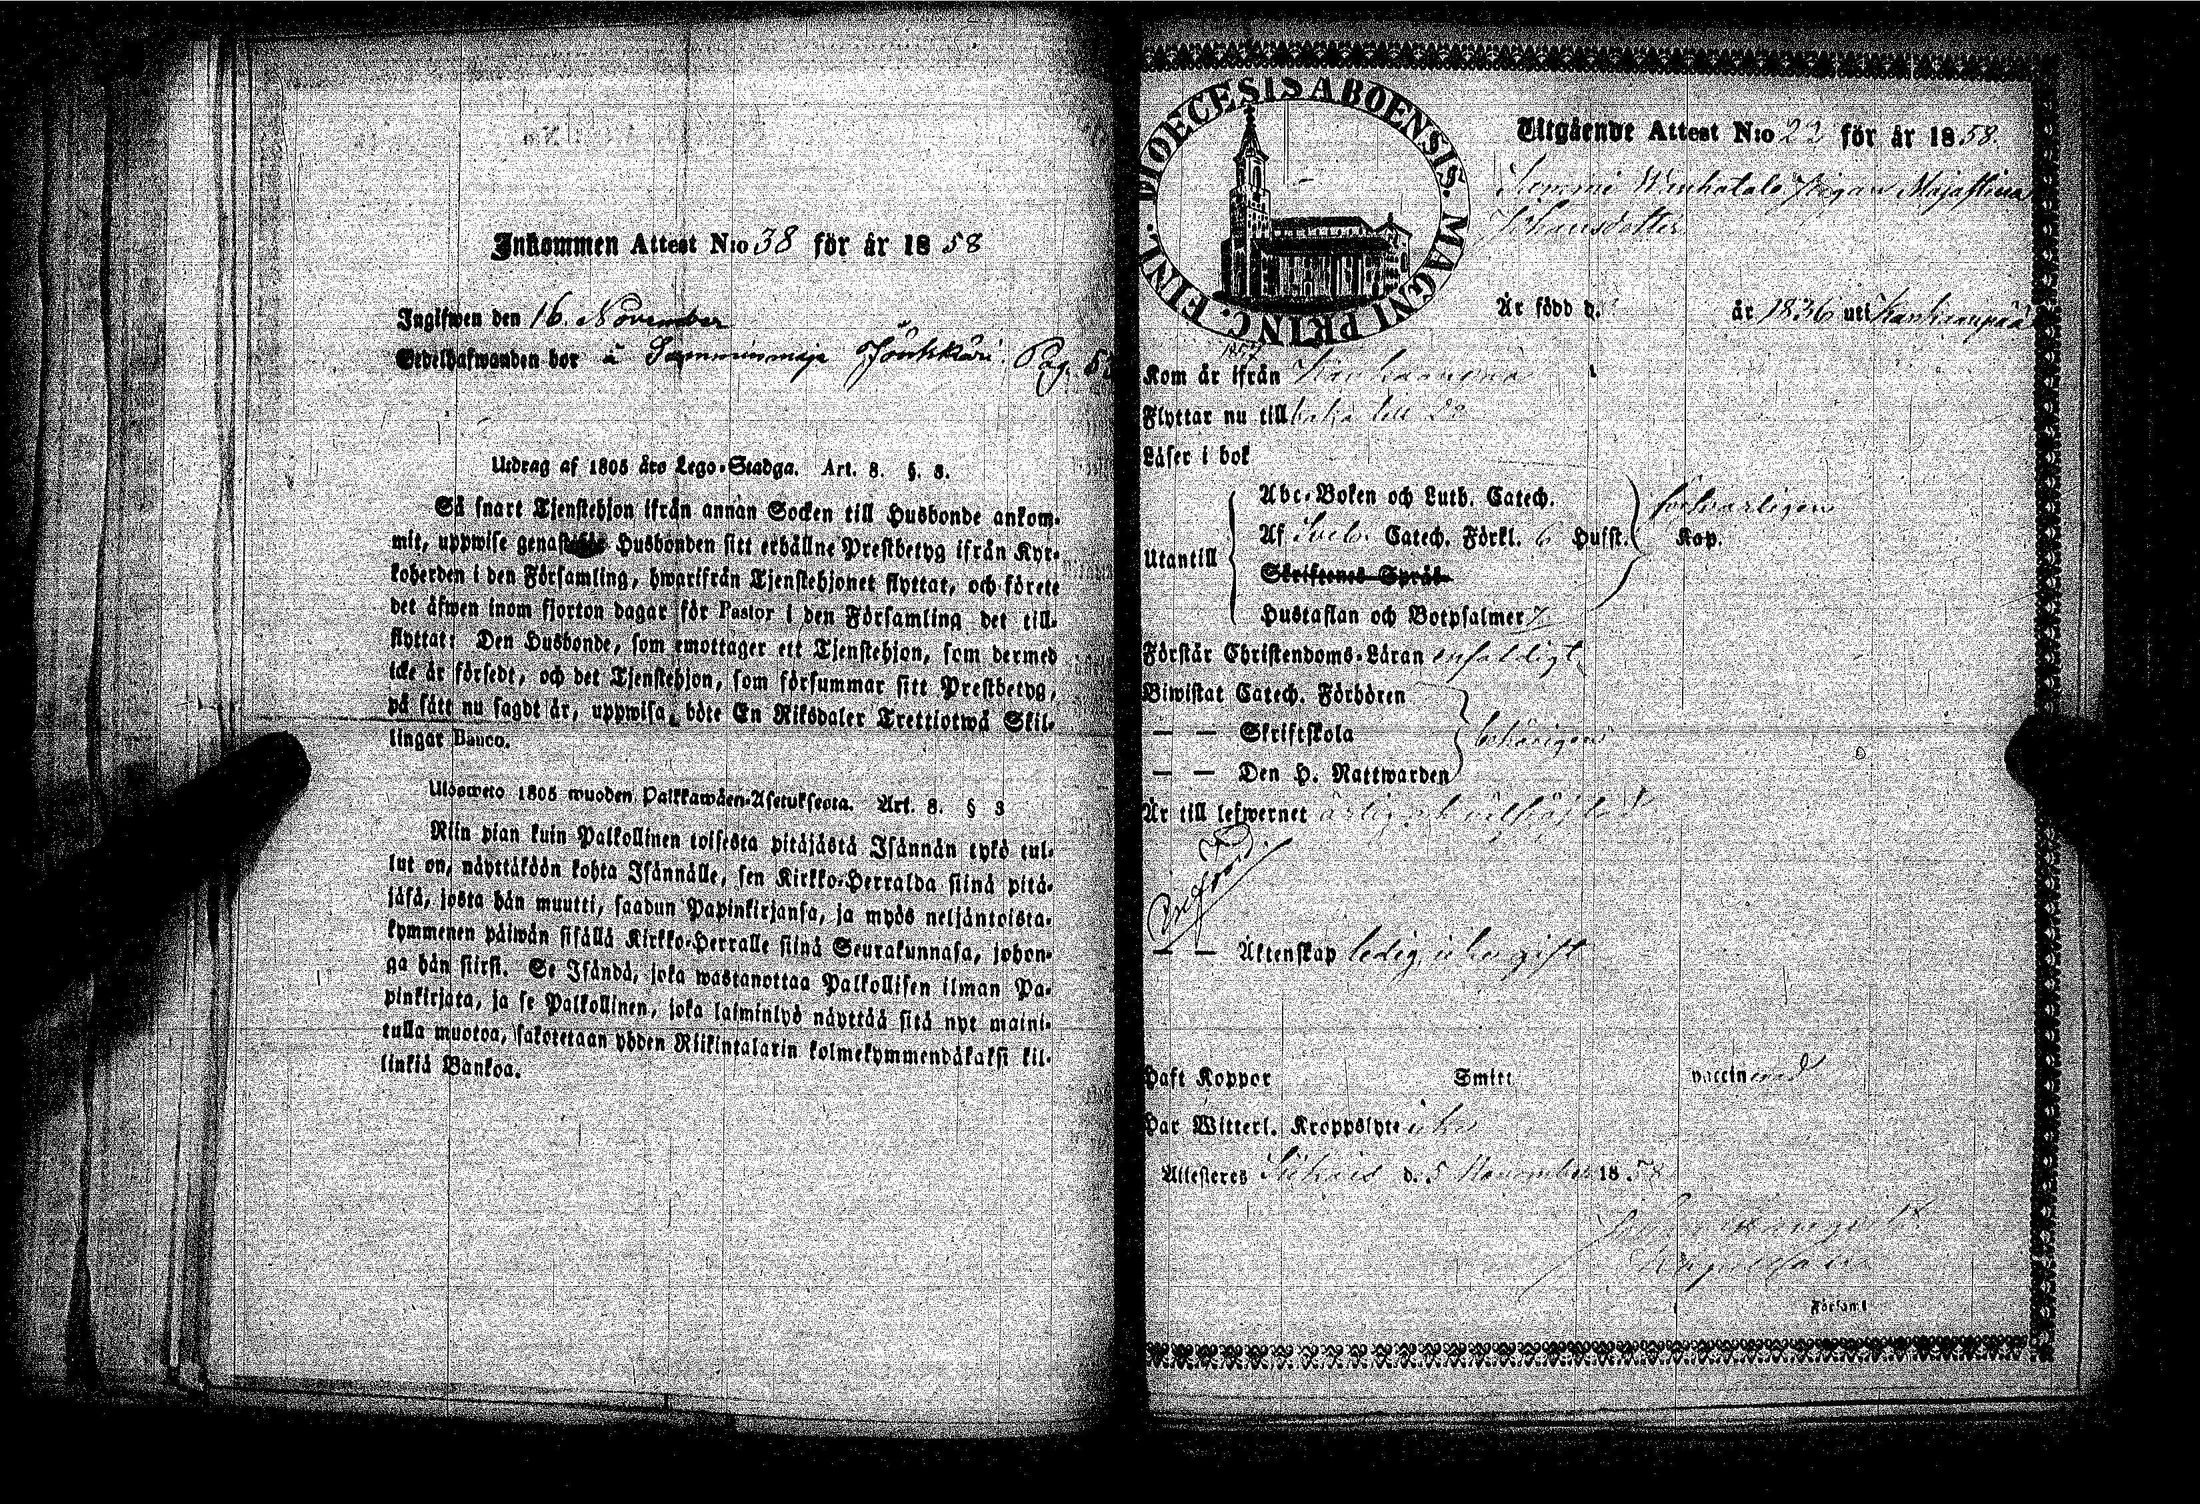 Inkommen Attest N:o 38 för år 1858
Ingifwen den 16. November
Bedelhafwanden bor å Jönkkäri. Pag. 53
Utdrag af 1805 års Lego-Stadga. Art. 8. §. 3.
Så snart Tjenstehjon ifrån annan Socken till Husbonde ankom-
mit, uppwise genast Husbonden sitt erhållne Prestbetyg ifrån Kyr-
koherden i den Församling, hwarifrån Tjenstehjonet flyttat, och förete
det äfwen inom fjorton dagar för Pastor i den Församling det till-
flyttat: Den Husbonde, som emottager ett Tjenstehjon, som dermed
icke är försedt, och det Tjenstehjon, som försummar sitt Prestbetyg,
på sätt nu sagdt är, uppwisa, böte En Riksdaler Trettiotwå Skil-
lingar Banco.
Ulosweto 1805 wuoden Palkkawäen-Asetuksesta. Art. 8. § 3
Niin pian kuin Palkollinen toisesta pitäjästä Isännän tykö tul-
lut on, näyttäköön kohta Isännälle, sen Kirkko-Herralda siinä pitä-
jäsä, josta hän muutti, saadun Papinkirjansa, ja myös neljäntoista-
kymmenen päiwän sisällä Kirkko-Herralle siinä Seurakunnasa, johon-
ga hän siirsi. Se Isändä, joka wastanottaa Palkollisen ilman Pa-
pinkirjata, ja se Palkollinen, joka laiminlyö näyttää sitä nyt maini-
tulla muotoa, sakotetaan yhden Riikintalarin kolmekymmendäkaksi kil-
linkiä Bankoa.
DIOECESIS ABOENSIS. MAGNI PRINC. FINL.
Utgående Attest N:o 23 för år 1858.
Pigan Maja Stina
Johansdotter
Är född d. år 1836 uti Kankaanpää
1857
Kom år ifrån Kankaanpää
Flyttar nu till
Läser i bok
Abc-Boken och Luth. Catech. försvarligen
Utantill
Af Sveb. Catech. Förkl. 6 Hufst. Kap.
Skriftenes Språk
Hustaflan och Botpsalmer 7
Förstår Christendoms-Läran enfaldigt
Biwistat Catech. Förhören
— — Skriftskola behörigen
— — Den H. Nattwarden
Är till lefwernet ärlig och välfräjdad
— — Äktenskap ledig, icke gift
Haft Koppor Smitt vaccinerad
Har Witterl. Kroppslyte icke
Attesteres d. 5 November 1858
Församl